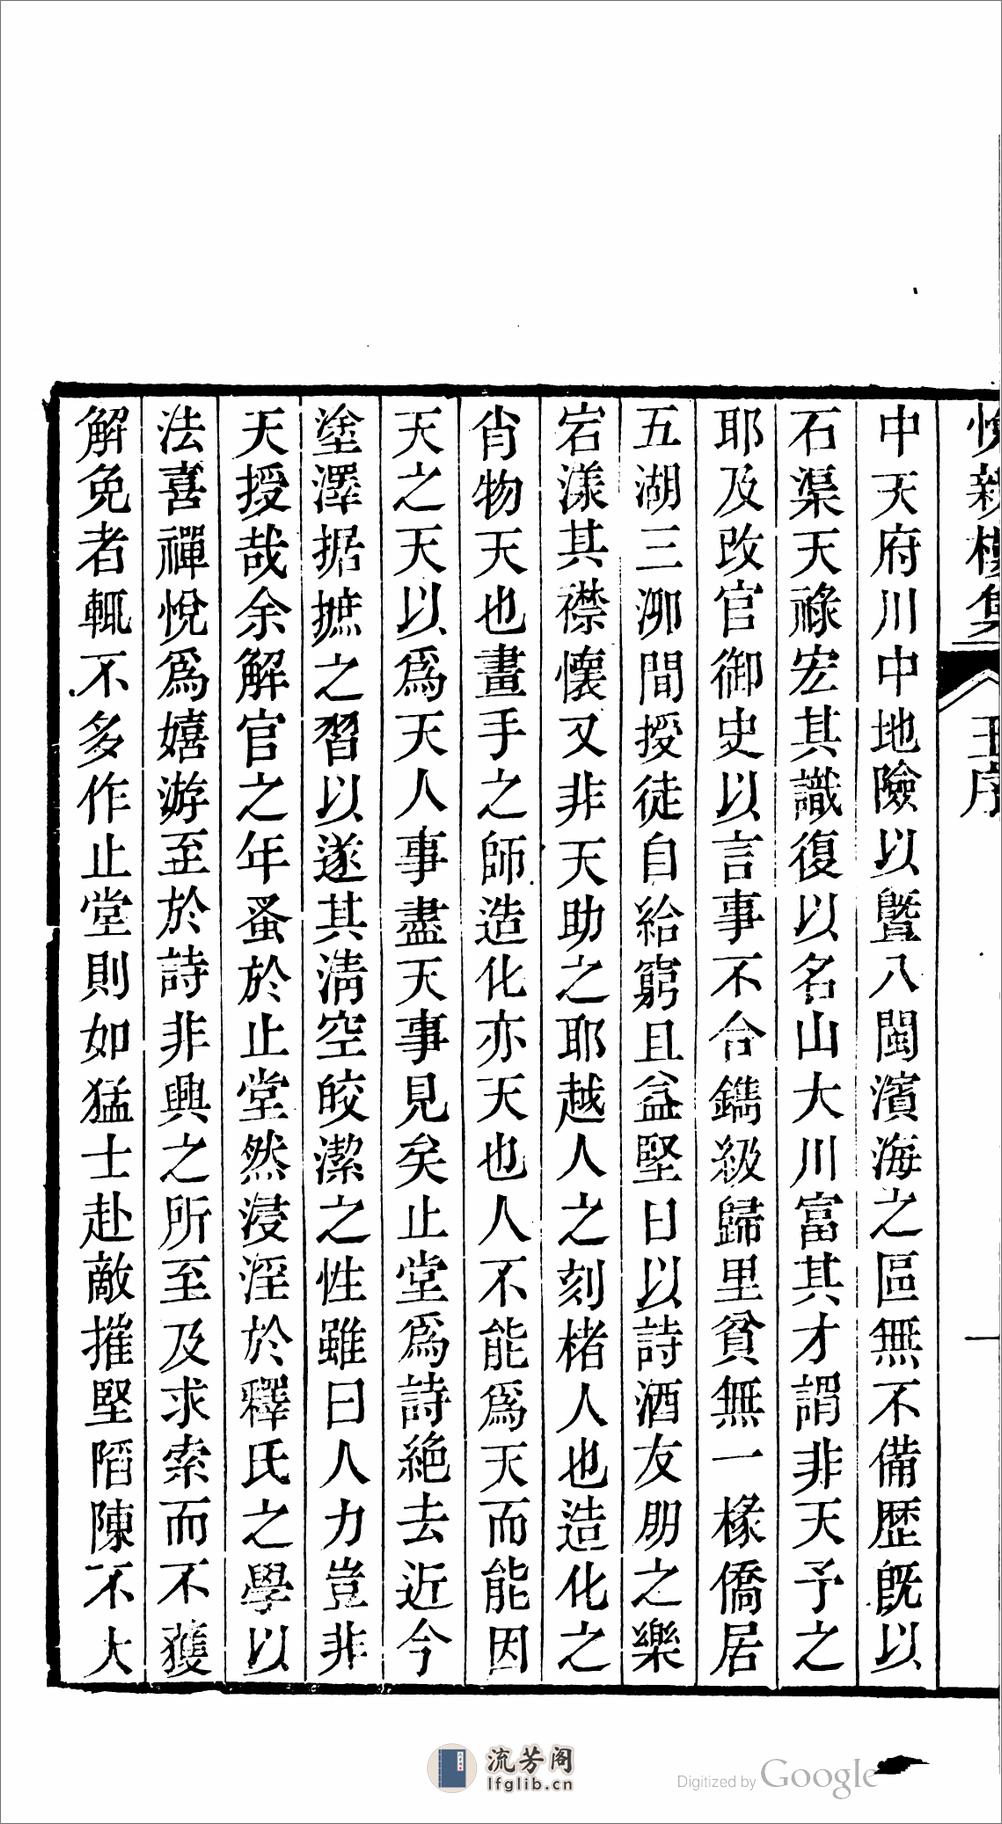 悅親樓集 王序 一
中天府川中地險以暨八閩濱海之區無不備歷旣以
石渠天祿宏其識復以名山大川富其才謂非天予之
耶及改官御史以言事不合鐫級歸里貧無一椽僑居
五湖三泖間授徒自給窮且益堅日以詩酒友朋之樂
宕漾其襟懷又非天助之耶越人之刻楮人也造化之
肖物天也畫手之師造化亦天也人不能爲天而能因
天之天以爲天人事盡天事見矣止堂爲詩絕去近今
塗澤掂摭之習以遂其淸空皎潔之性雖曰人力豈非
天授哉余解官之年蚤於止堂然浸淫於釋氏之學以
法喜禪悅爲嬉游至於詩非興之所至及求索而不獲
解免者輒不多作止堂則如猛士赴敵摧堅陷陳不大
流芳阁
lfglib.cn
Digitized by Google